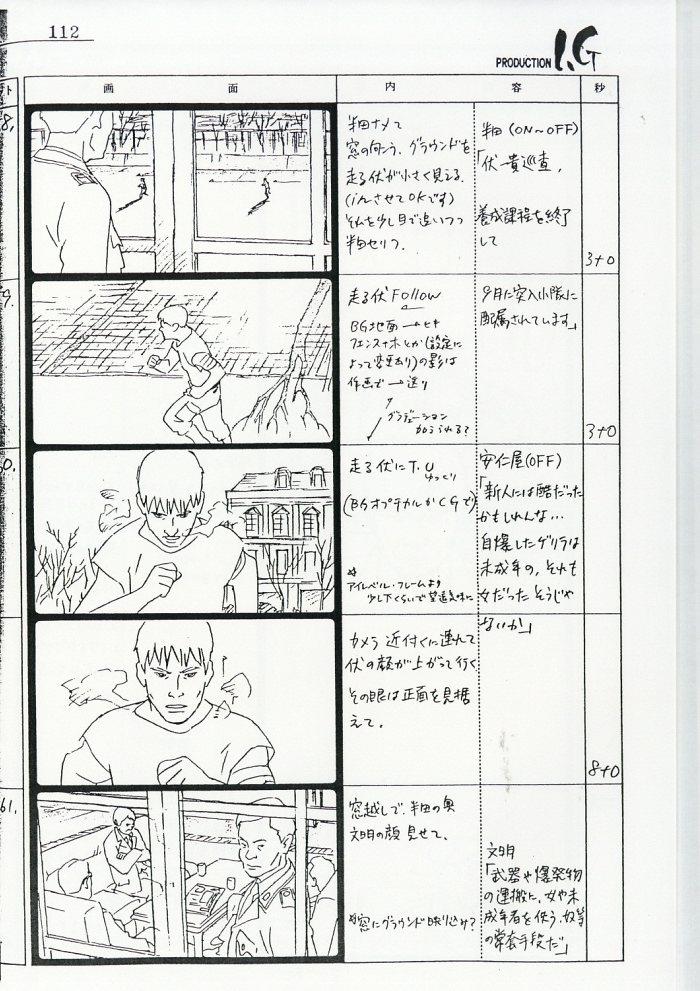 112
PRODUCTION I.G
ト
画 面
内 容
秒
8.
半田ナメて
窓の向こう、グラウンドを
走る伏が小さく見える。
(inさせてOKです)
それを少し目で追いつつ
半田セリフ。
半田(ON~OFF)
「伏一貴巡査、
養成課程を終了
して
3+0
9.
走る伏Follow
BG地面→ヒキ
フェンスナナホとか(設定に
よって変更あり)の影は
作画で→送り
グラデーション
加えられる?
9月に突入小隊に
配属されています」
3+0
60.
走る伏にT.U
ゆっくり
(BGオプチカルかCGで)
アイレベル・フレームより
少し下くらいで望遠気味に
安仁屋(OFF)
「新人には酷だった
かもしれんな…
自爆したゲリラは
未成年の、それも
女だったそうじゃ
ないか」
カメラ近付くに連れて
伏の顔が上がって行く
その眼は正面を見据
えて。
8+0
61.
窓越しで、半田の奥
文明の顔見せて、
※窓にグラウンド映り込み?
文明
「武器や爆発物
の運搬に、女や未
成年者を使う、奴等
の常套手段だ」